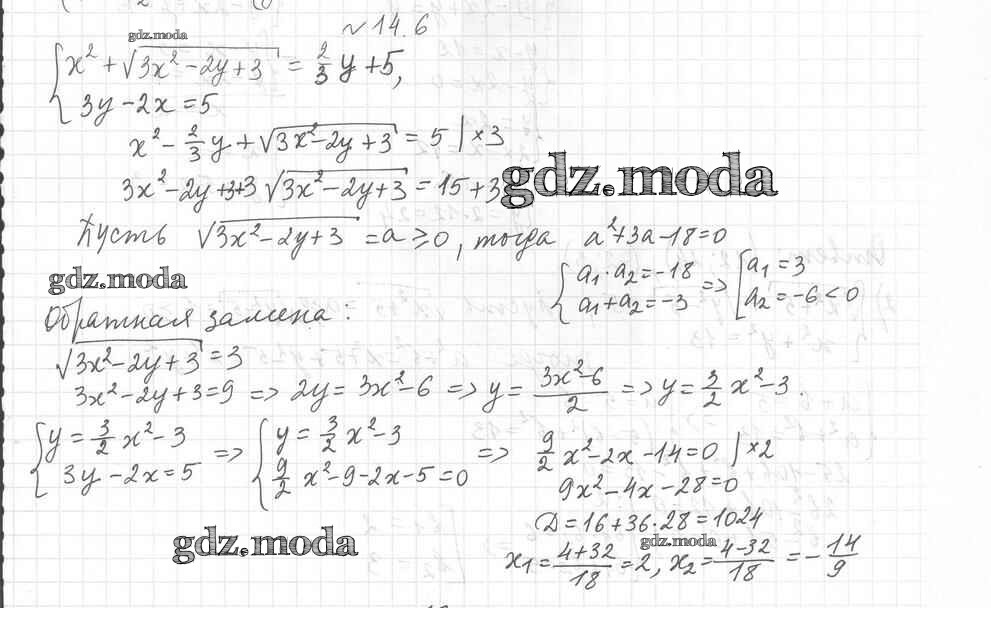 № 14.6
gdz.moda
{ x² + √(3x² - 2y + 3) = 2/3 y + 5,
3y - 2x = 5
x² - 2/3 y + √(3x² - 2y + 3) = 5 | × 3
3x² - 2y + 3 + 3√(3x² - 2y + 3) = 15 + 3
gdz.moda
Пусть √(3x² - 2y + 3) = a ≥ 0, тогда a² + 3a - 18 = 0
{ a₁ · a₂ = -18
a₁ + a₂ = -3 => [ a₁ = 3
a₂ = -6 < 0
gdz.moda
Обратная замена:
√(3x² - 2y + 3) = 3
3x² - 2y + 3 = 9 => 2y = 3x² - 6 => y = (3x² - 6)/2 => y = 3/2 x² - 3.
{ y = 3/2 x² - 3
3y - 2x = 5 => { y = 3/2 x² - 3
9/2 x² - 9 - 2x - 5 = 0 => 9/2 x² - 2x - 14 = 0 | × 2
9x² - 4x - 28 = 0
D = 16 + 36 · 28 = 1024
gdz.moda
gdz.moda
x₁ = (4 + 32)/18 = 2, x₂ = (4 - 32)/18 = - 14/9